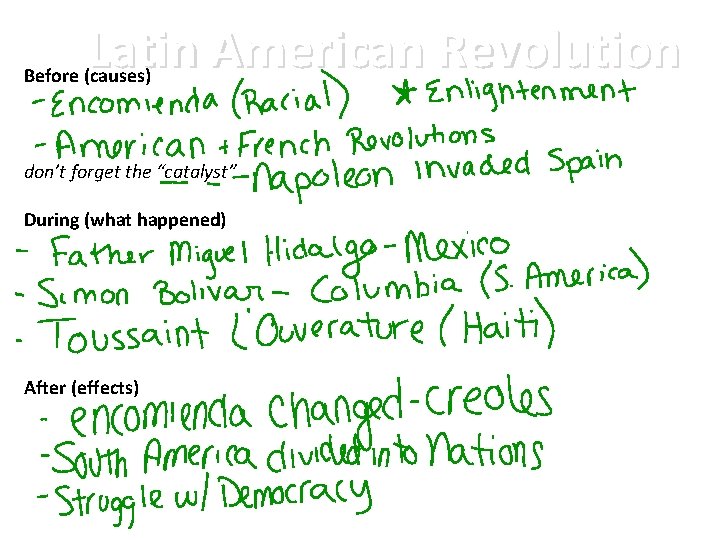 Latin American Revolution
Before (causes)
- Encomienda (Racial) ★ Enlightenment
- American + French Revolutions
don't forget the "catalyst" - Napoleon invaded Spain
During (what happened)
- Father Miguel Hidalgo - Mexico
- Simon Bolivar - Columbia (S. America)
- Toussaint L'Ouverature (Haiti)
After (effects)
- encomienda changed - creoles
- South America divided into Nations
- Struggle w/ Democracy